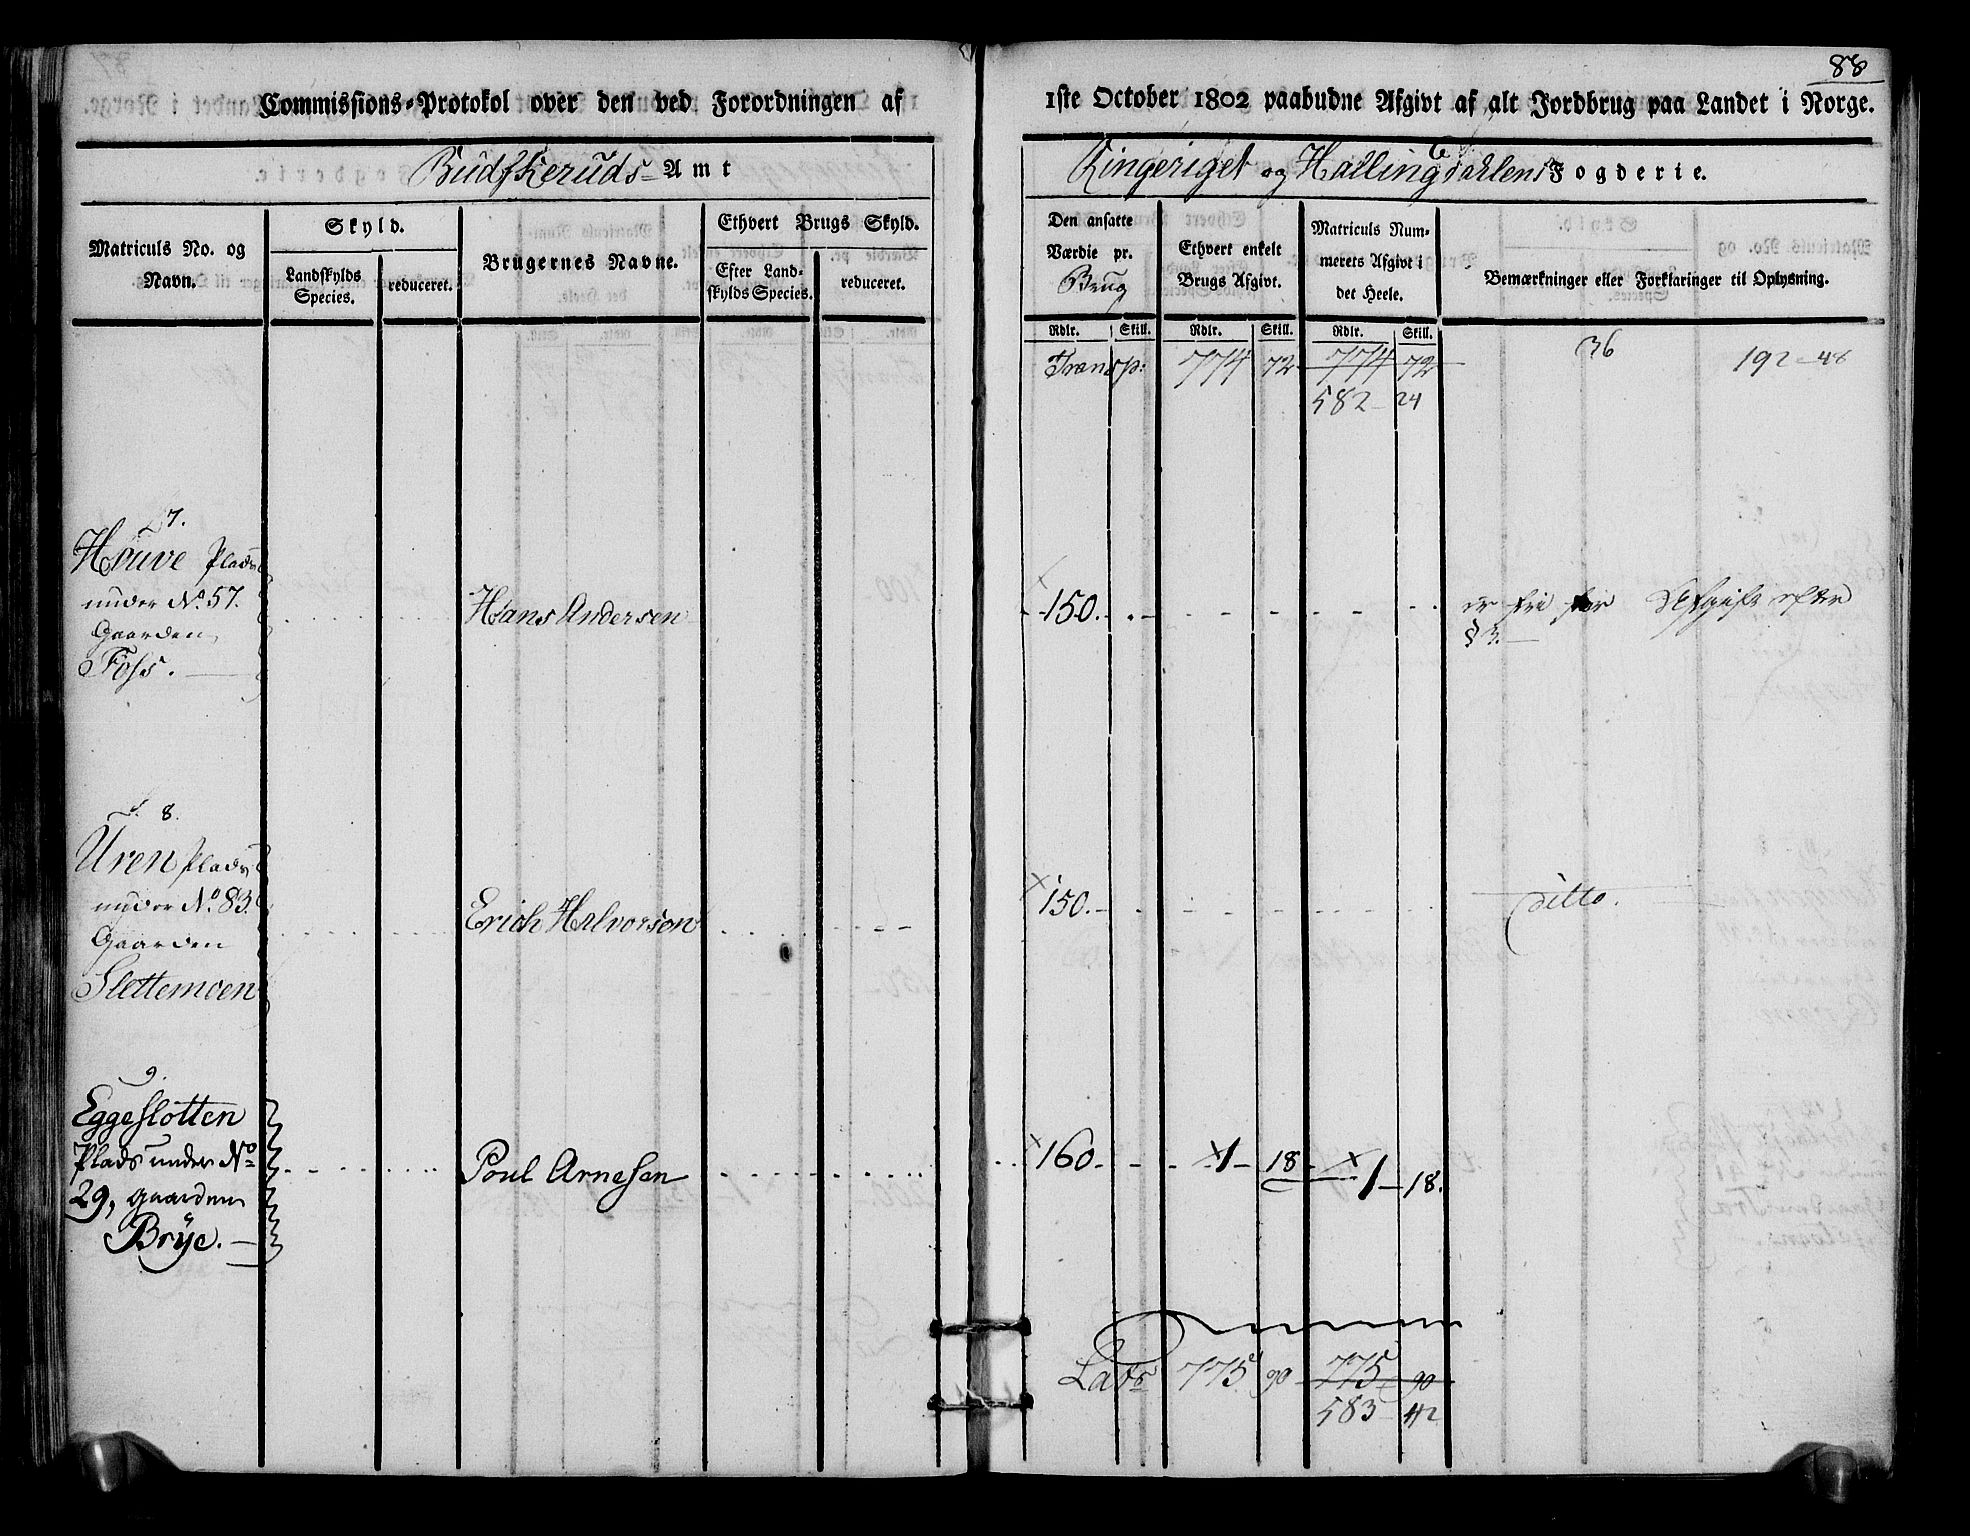 88
Commissions-Protokol over den ved Forordningen af 1ste October 1802 paabudne Afgivt af alt Jordbrug paa Landet i Norge.
Budskeruds Amt
Ringeriget og Hallingdahlens Fogderie.
Matriculs No. og Navn.
Skyld.
Landskylds Species.
reduceret.
Brugernes Navne.
Ethvert Brugs Skyld.
Efter Landskylds Species.
reduceret.
Den ansatte Værdie pr. Brug
Ethvert enkelt Brugs Afgivt.
Matriculs Nummerets Afgivt i det Heele.
Bemærkninger eller Forklaringer til Oplysning.
Rdlr. Skill. Rdlr. Skill. Rdlr. Skill.
Transp: 774 72 774 72 36 192-48
582 24
7.
Houve Plads
under No. 57.
Gaarden
Foss.
Hans Andersen 150. er fri for Afgift efter
§ 3.
8.
Uren Plads
under No. 83.
Gaarden
Slettemoen
Erich Halvorsen 150. ditto.
9.
Eggeslotten
Plads under No
29, Gaarden
Brye.
Poul Arnesen 160. 1 18 1 18.
Lats 775 90 775 90
583 42